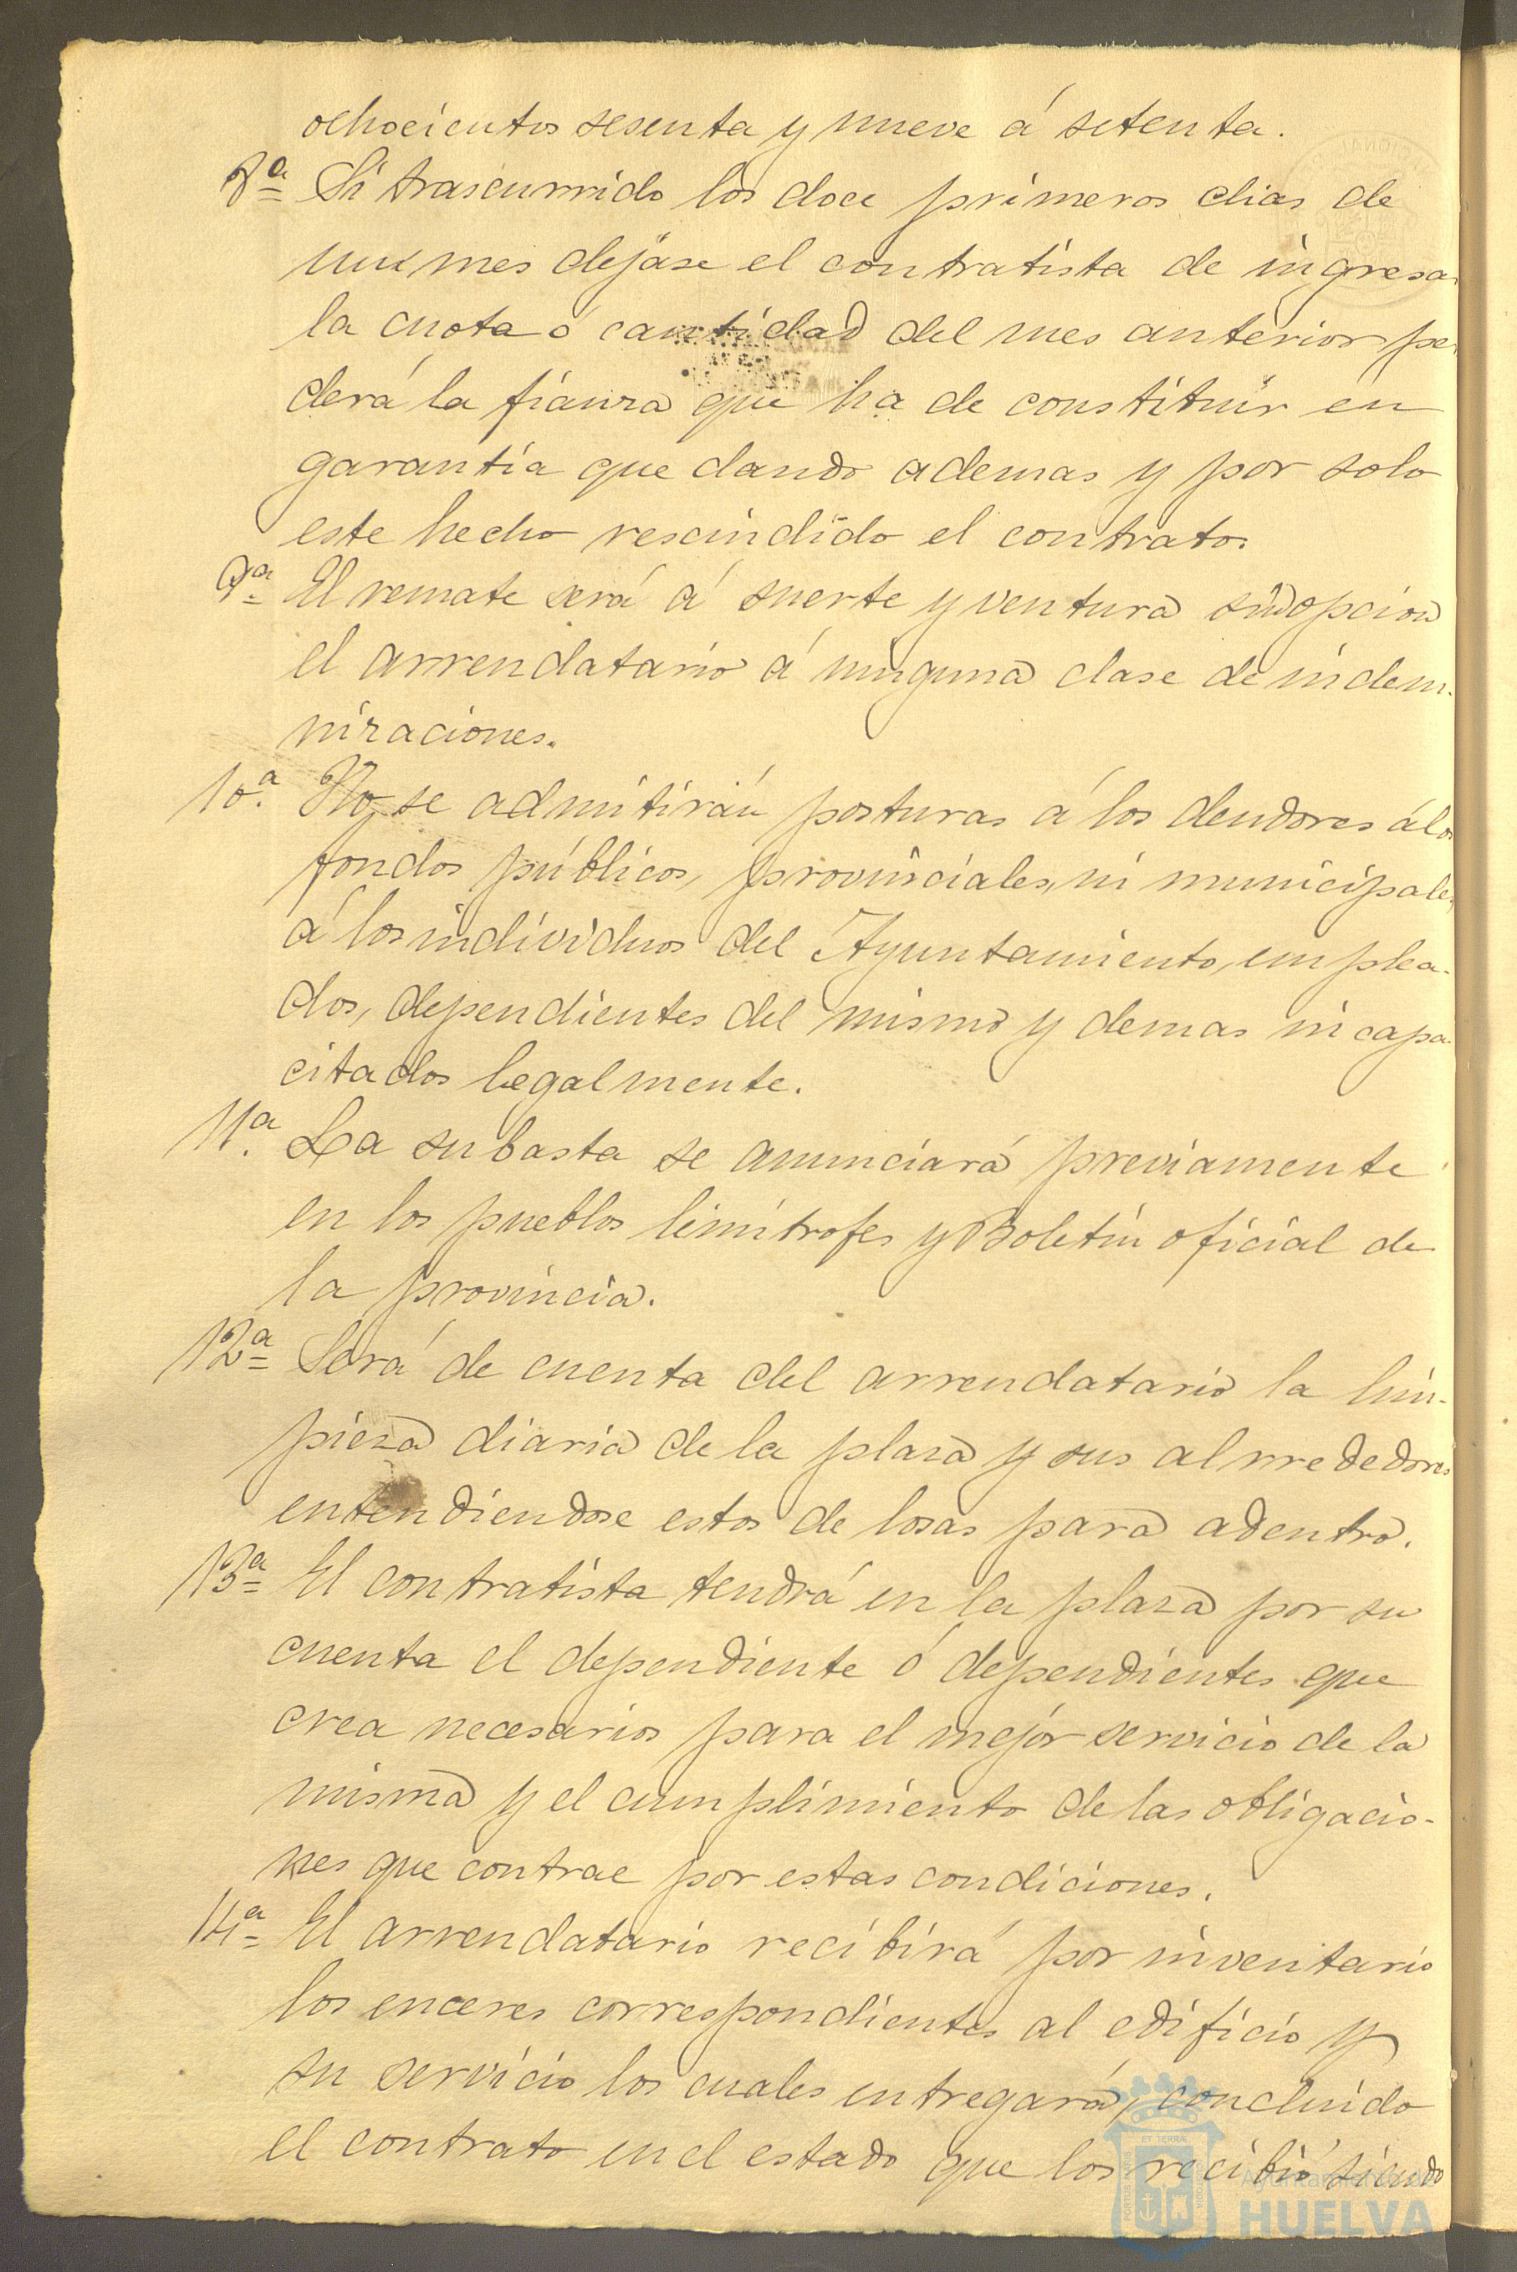 ochocientos sesenta y nueve á setenta.
8ª Si trascurrido los doce primeros dias de
un mes dejáse el contratista de ingresar
la cuota ó cantidad del mes anterior per
derá la fianza que ha de constituir en
garantía que dando ademas y por solo
este hecho rescindido el contrato.
9ª El remate será á suerte y ventura sin opcion
el arrendatario á ninguna clase de indem-
nizaciones.
10ª No se admitirán posturas á los deudores á los
fondos públicos, provinciales, ni municipales,
á los individuos del Ayuntamiento, emplea-
dos, dependientes del mismo y demas incapa-
citados legalmente.
11ª La subasta se anunciará previamente
en los pueblos limítrofes y Boletin oficial de
la provincia.
12ª Será de cuenta del arrendatario la lim-
pieza diaria de la plaza y sus alrrededores
entendiendose estos de losas para adentro.
13ª El contratista tendrá en la plaza por su
cuenta el dependiente ó dependientes que
crea necesarios para el mejor servicio de la
misma y el cumplimiento de las obligacio-
nes que contrae por estas condiciones.
14ª El arrendatario recibirá por inventario
los enceres correspondientes al edificio y
su servicio los cuales entregará, concluido
el contrato en el estado que los recibió siendo
Ayuntamiento de
HUELVA